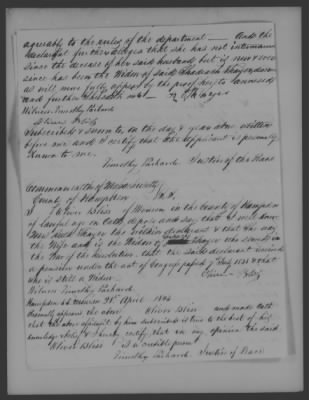 agreeably to the rules of the department — And the
declarant further alleges that she has not intermarried
since the decease of her said husband but is now & ever
since has been the Widow of said Thayer
as will more fully appear by the proof hereto annexed
and further saith not — Thayer
Witness Timothy Packard
Oliver Bliss
Subscribed & sworn to on the day & year above written
before me and I certify that the applicant is personally
known to me.
Timothy Packard Justice of the Peace
Commonwealth of Massachusetts
County of Hampden ss.
I Oliver Bliss of Monson in the county of Hampden
of lawful age on Oath depose and say that I well know
Thayer the within declarant & that she was
the Wife and is the Widow of Thayer who served in
the War of the Revolution that the said declarant received
a pension under the act of Congress passed 7 July 1838 & that
she is still a Widow.
Oliver Bliss
Witness Timothy Packard
Hampden ss Monson 28th April 1844
Personally appeared the above Oliver Bliss and made oath
that the above affidavit by him subscribed is true to the best of his
knowledge & belief & I hereby certify that in my opinion the said
Oliver Bliss is a credible person
Timothy Packard Justice of Peace